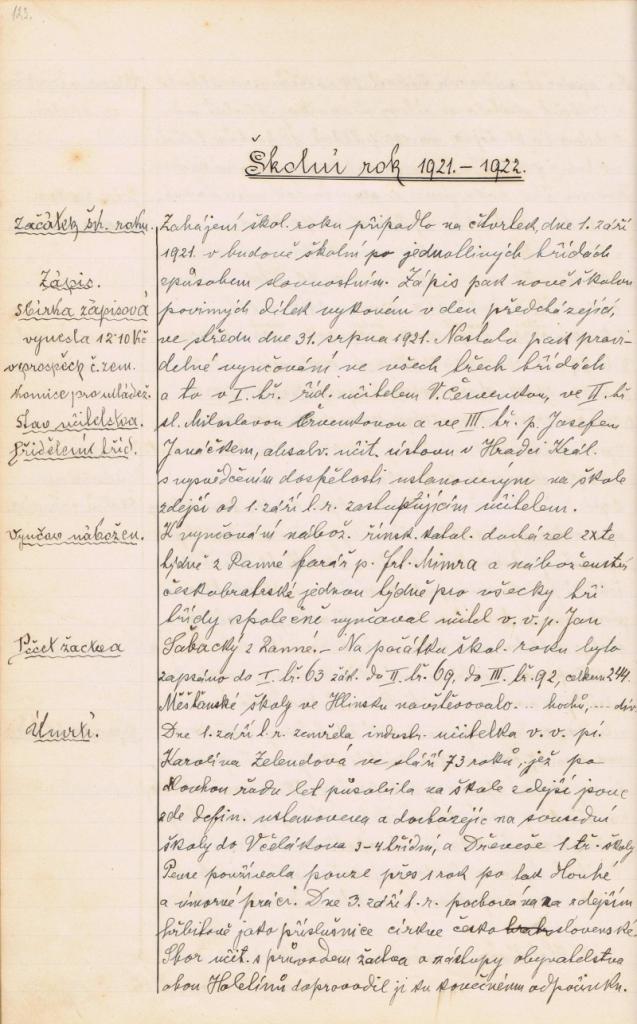 123.
Školní rok 1921.–1922.
Začátek šk. roku.
Zahájení škol. roku připadlo na čtvrtek, dne 1. září
1921. v budově školní po jednotlivých třídách
Zápis.
způsobem slavnostním. Zápis pak nově školou
Sbírka zápisová
povinných dítek vykonán v den předcházející,
vynesla 12·10 Kč
ve středu dne 31. srpna 1921. Nastalo pak pravi-
v prospěch č. zem.
delné vyučování ve všech třech třídách
komice pro mládež.
a to v I. tř. říd. učitelem V. Červenkou, ve II. tř.
Stav učitelstva.
sl. Miloslavou Červenkovou a ve III. tř. p. Josefem
Přidělení tříd.
Janáčkem, absolv. učit. ústavu v Hradci Král.
s vysvědčením dospělosti ustanoveným na škole
zdejší od 1. září t. r. zastupujícím učitelem.
Vyučov. nábožen.
K vyučování nábož. římsk. katol. docházel 2x te
týdně z Ranné farář p. Frt. Mimra a náboženství
českobratrské jednou týdně pro všecky tři
třídy společně vyučoval učitel v. v. p. Jan
Počet žactva
Sabacký z Ranné. – Na počátku škol. roku bylo
zapsáno do I. tř. 63 žák. do II. tř. 69, do III. tř. 92, celkem 244.
Měšťanské školy ve Hlinsku navštěvovalo ... hochů, ... dív.
Úmrtí.
Dne 1. září t. r. zemřela industr. učitelka v. v. pí.
Karolina Zelendová ve stáří 73 roků, jež po
dlouhou řadu let působila na škole zdejší jsouc
zde defin. ustanovena a docházejíc na sousední
školy do Včelákova 3–4 třídní, a Dřeveše 1 tř. školy
Pense používala pouze přes 1 rok po tak dlouhé
a úmorné práci. Dne 3. září t. r. pochována na zdejším
hřbitově jako příslušnice církve česko bratrslovenské.
Sbor učit. s průvodem žactva a zástupy obyvatelstva
obou Holetínů doprovodil ji ku konečnému odpočinku.